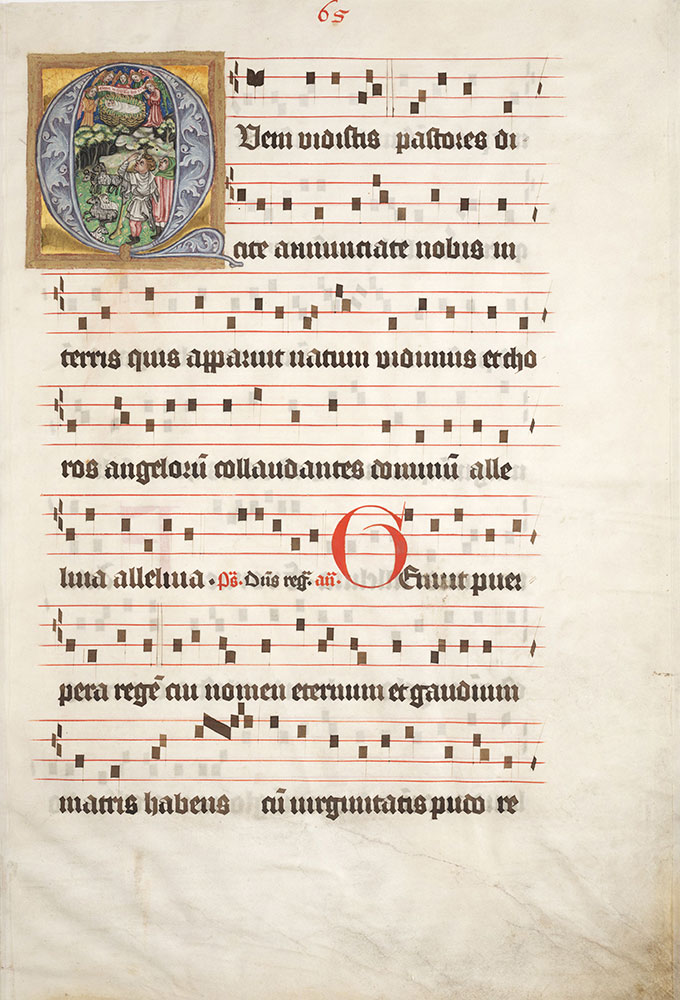 65
Quem vidistis pastores di
cite annunciate nobis in
terris quis apparuit natum vidimus et cho
ros angelorū collaudantes dominū alle
luia alleluia · ps̄. Dn̄s reg̅. an̄. Genuit puer
pera regē cui nomen eternum et gaudium
matris habens cū virginitatis pudo re